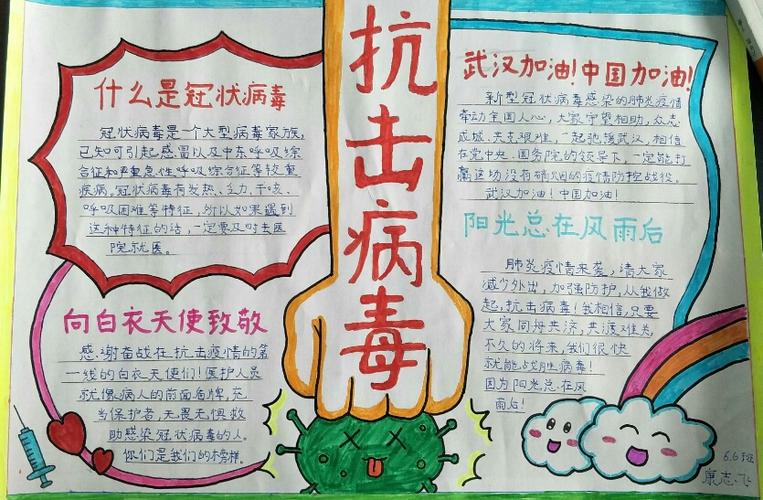 什么是冠状病毒
冠状病毒是一个大型病毒家族,
已知可引起感冒以及中东呼吸综
合征和严重急性呼吸综合征等较重
疾病,冠状病毒有发热、乏力、干咳、
呼吸困难等特征,所以如果遇到
这种特征的话,一定要及时去医
院就医。
向白衣天使致敬
感谢奋战在抗击疫情的第
一线的白衣天使们!医护人员
就像病人的前面盾牌,充
当保护者,无畏无惧救
助感染冠状病毒的人。
你们是我们的榜样。
抗击病毒
武汉加油!中国加油!
新型冠状病毒感染的肺炎疫情
牵动全国人心,大家守望相助,众志
成城,共克艰难,一起驰援武汉,相信
在党中央、国务院的领导下,一定能打
赢这场没有硝烟的疫情防控战役。
武汉加油!中国加油!
阳光总在风雨后
肺炎疫情来袭,请大家
减少外出,加强防护,从我做
起,抗击病毒!我相信,只要
大家同舟共济,共渡难关,
不久的将来,我们很快
就能战胜病毒!
因为阳光总在风
雨后!
6.6班
康志飞